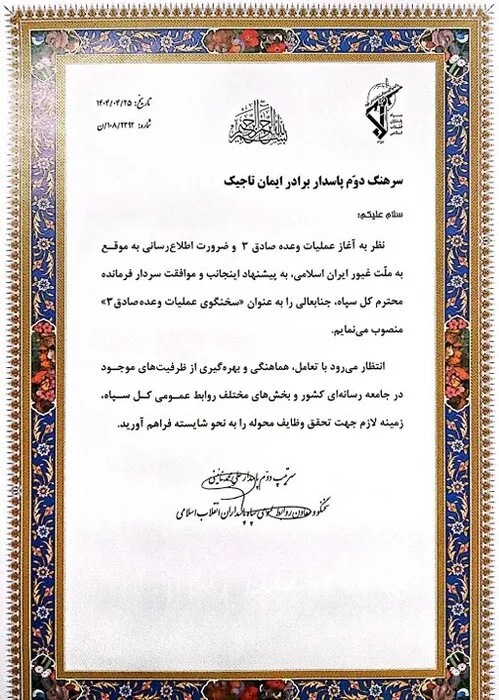 تاریخ: ۱۴۰۴/۰۴/۲۵
شماره: ۱۰۸/۲۲۹۲/ن
بسم الله الرحمن الرحیم
سپاه
پاسداران
انقلاب
اسلامی
سرهنگ دوّم پاسدار برادر ایمان تاجیک
سلام علیکم؛
نظر به آغاز عملیات وعده صادق ۳ و ضرورت اطلاع‌رسانی به موقع
به ملّت غیور ایران اسلامی، به پیشنهاد اینجانب و موافقت سردار فرمانده
محترم کل سپاه، جنابعالی را به عنوان «سخنگوی عملیات وعده صادق ۳»
منصوب می‌نمایم.
انتظار می‌رود با تعامل، هماهنگی و بهره‌گیری از ظرفیت‌های موجود
در جامعه رسانه‌ای کشور و بخش‌های مختلف روابط عمومی کل سپاه،
زمینه لازم جهت تحقق وظایف محوله را به نحو شایسته فراهم آورید.
سرتیپ دوّم پاسدار علی محمد نائینی
سخنگو و معاون روابط عمومی سپاه پاسداران انقلاب اسلامی